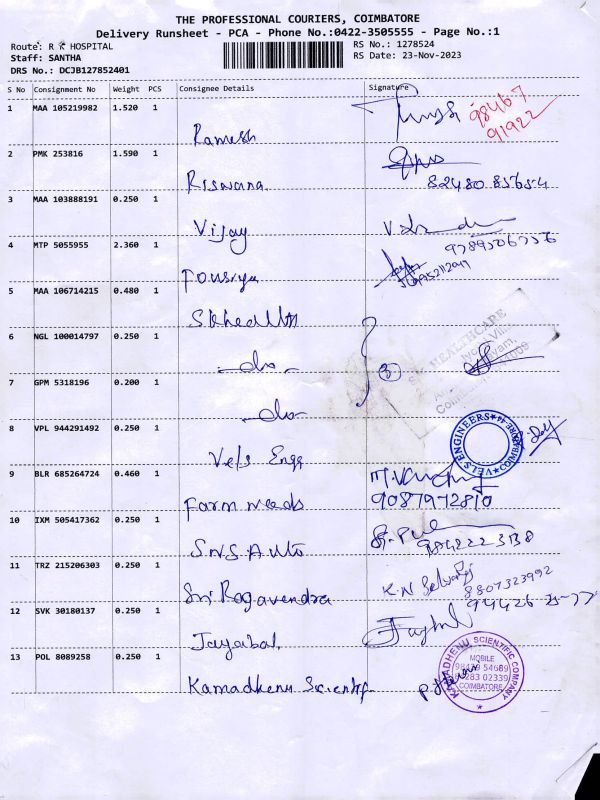 THE PROFESSIONAL COURIERS, COIMBATORE
Delivery Runsheet - PCA - Phone No.:0422-3505555 - Page No.:1
Route: R K HOSPITAL
RS No.: 1278524
Staff: SANTHA
RS Date: 23-Nov-2023
DRS No.: DCJB127852401
S No Consignment No Weight PCS Consignee Details Signature
1 MAA 105219982 1.520 1
98467
91922
Ramesh
2 PMK 253816 1.590 1
Riswana
82480 85654
3 MAA 103888191 0.250 1
Vijay
9789506756
4 MTP 5055955 2.360 1
Fousiya
5 MAA 106714215 0.480 1
HEALTHCARE
6 NGL 100014797 0.250 1
-do-
3
7 GPM 5318196 0.200 1
-do-
8 VPL 944291492 0.250 1
VELS ENGINEERS
Vels Engg
9 BLR 685264724 0.460 1
Farm needs
9087972810
10 IXM 505417362 0.250 1
SNS Auto
984222 3138
11 TRZ 215206303 0.250 1
K.N
8807323992
Sri Ragavendra
94426
12 SVK 30180137 0.250 1
Jayabal
13 POL 8089258 0.250 1
KAMADHENU SCIENTIFIC COMPANY
MOBILE
COIMBATORE
Kamadhenu Scientif